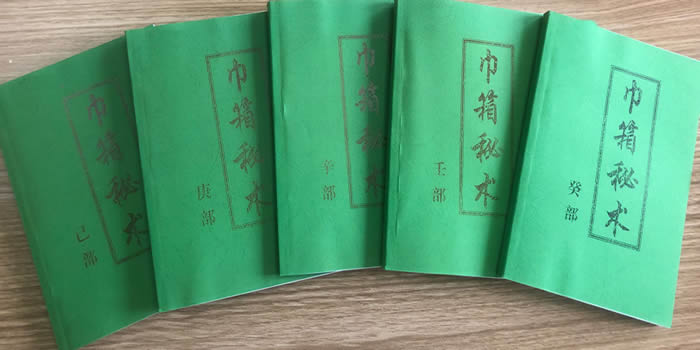 巾箱秘术
己部
巾箱秘术
庚部
巾箱秘术
辛部
巾箱秘术
壬部
巾箱秘术
癸部